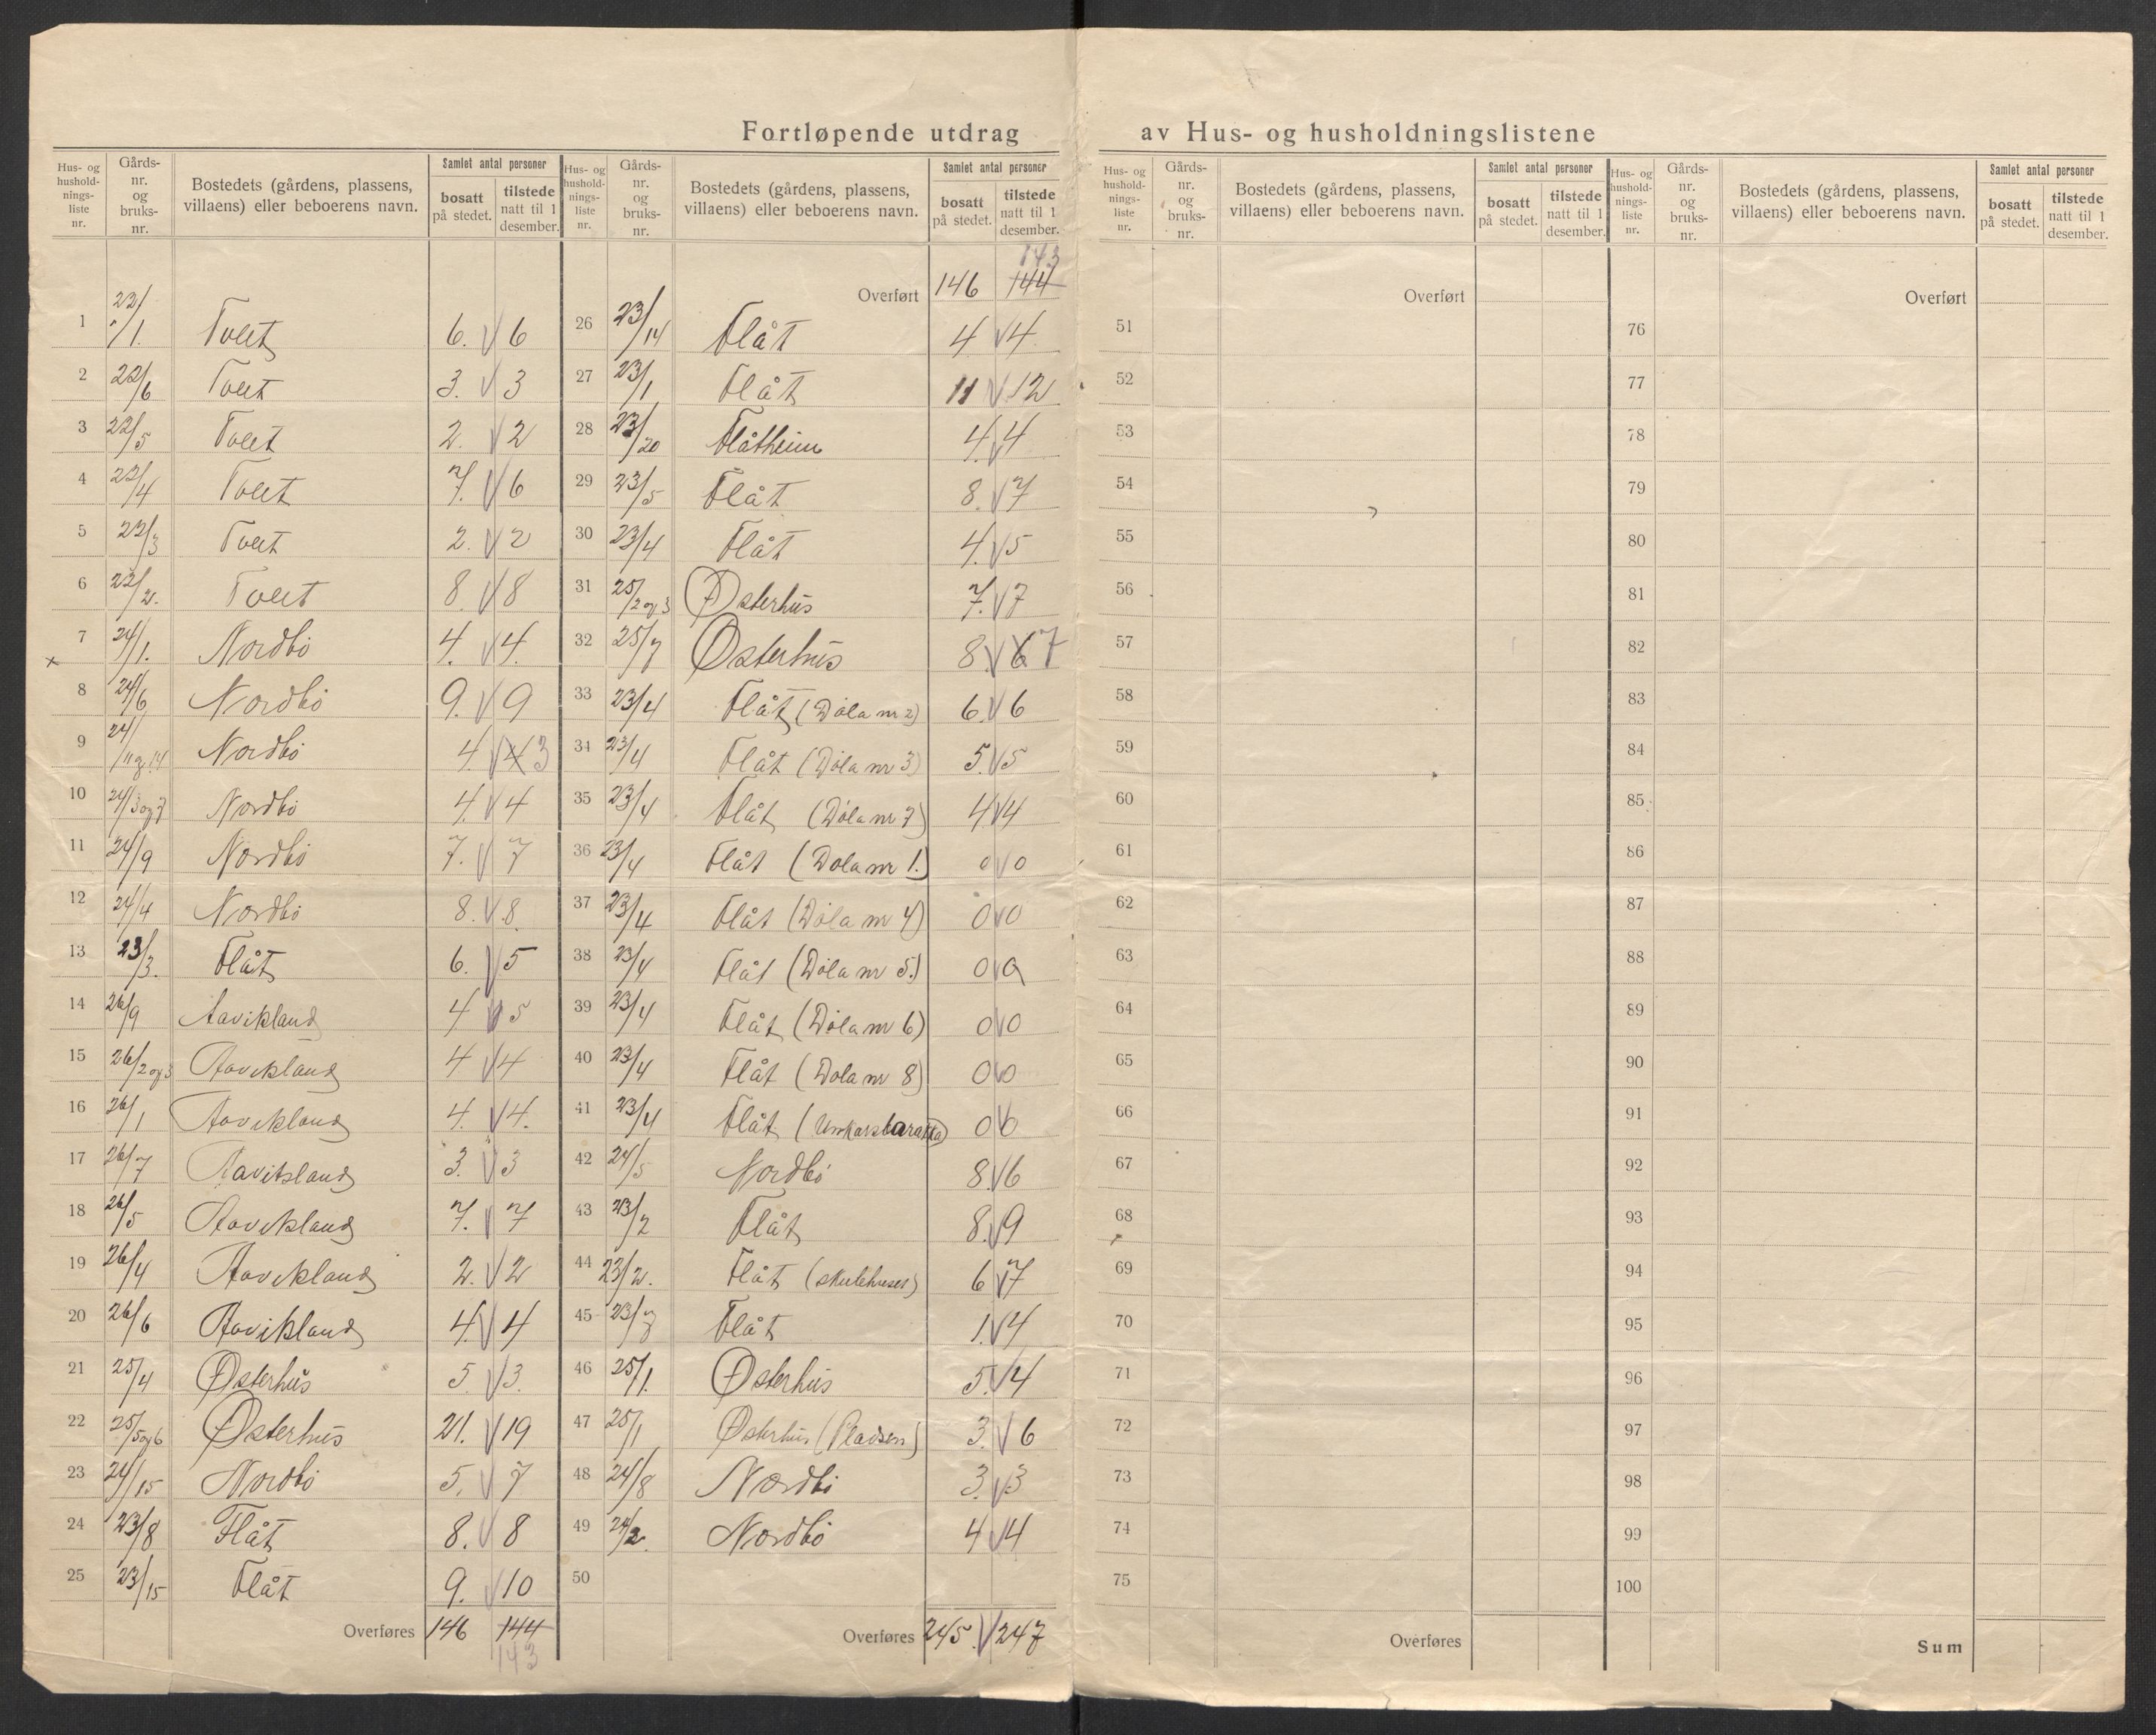 Fortløpende utdrag av Hus- og husholdningslistene
Hus- og husholdnings-liste nr. Gårds-nr. og bruks-nr. Bostedets (gårdens, plassens, villaens) eller beboerens navn. Samlet antal personer bosatt på stedet. tilstede natt til 1 desember.
1 22/1. Tveit 6. V 6
2 22/6 Tveit 3. V 3
3 22/5 Tveit 2. V 2
4 22/4 Tveit 7. V 6
5 22/3 Tveit 2. V 2
6 22/2. Tveit 8. V 8
7 24/1. Nordbö 4. V 4.
8 24/6 Nordbö 9. V 9
9 24/11 og 14 Nordbö 4. V 4 3
10 24/3 og 7 Nordbö 4. V 4
11 24/9 Nordbö 7. V 7
12 24/4 Nordbö 8. V 8.
13 23/3. Flåt 6. V 5
14 26/9 Aavikland 4 V 5
15 26/2 og 3 Aavikland 4 V 4
16 26/1 Aavikland 4. V 4.
17 26/7 Aavitsland 3. V 3
18 26/5 Aavikland 7. V 7
19 26/4 Aavikland 2. V 2
20 26/6 Aavikland 4. V 4
21 25/4 Østerhus 5. V 3.
22 25/5 og 6 Østerhus 21. V 19
23 24/15 Nordbö 5. V 7
24 23/8 Flåt 8. V 8
25 23/15 Flåt 9. V 10
Overføres 146 144
143
Hus- og husholdnings-liste nr. Gårds-nr. og bruks-nr. Bostedets (gårdens, plassens, villaens) eller beboerens navn. Samlet antal personer bosatt på stedet. tilstede natt til 1 desember.
143
Overført 146 144
26 23/14 Flåt 4 V 4
27 23/1 Flåt 11 V 12
28 23/20 Flåtheim 4. V 4
29 23/5 Flåt 8. V 7
30 23/4 Flåt 4. V 5
31 25/2 og 3 Østerhus 7. V 7
32 25/7 Østerhus 8. V 6 7
33 23/4 Flåt (Döla nr 2) 6. V 6
34 23/4 Flåt (Döla nr 3) 5. V 5
35 23/4 Flåt (Döla nr 7) 4. V 4
36 23/4 Flåt (Döla nr 1.) 0 V 0
37 23/4 Flåt (Döla nr 4) 0 V 0
38 23/4 Flåt (Döla nr 5.) 0 V 0
39 23/4 Flåt (Döla nr 6) 0 V 0
40 23/4 Flåt (Döla nr 8) 0 V 0
41 23/4 Flåt 0 V 0
42 24/5 Nordbö 8. V 6
43 23/2 Flåt 8. V 9
44 23/2. Flåt (skulehuset) 6 V 7
45 23/7 Flåt 1. V 4
46 25/1. Østerhus 5. V 4
47 25/1 Østerhus (Pladsen) 3. V 6
48 24/8 Nordbö 3. V 3
49 24/2. Nordbö 4 V 4
50
Overføres 245. V 247
Hus- og husholdnings-liste nr. Gårds-nr. og bruks-nr. Bostedets (gårdens, plassens, villaens) eller beboerens navn. Samlet antal personer bosatt på stedet. tilstede natt til 1 desember.
Overført
51
52
53
54
55
56
57
58
59
60
61
62
63
64
65
66
67
68
69
70
71
72
73
74
75
Overføres
Hus- og husholdnings-liste nr. Gårds-nr. og bruks-nr. Bostedets (gårdens, plassens, villaens) eller beboerens navn. Samlet antal personer bosatt på stedet. tilstede natt til 1 desember.
Overført
76
77
78
79
80
81
82
83
84
85
86
87
88
89
90
91
92
93
94
95
96
97
98
99
100
Sum